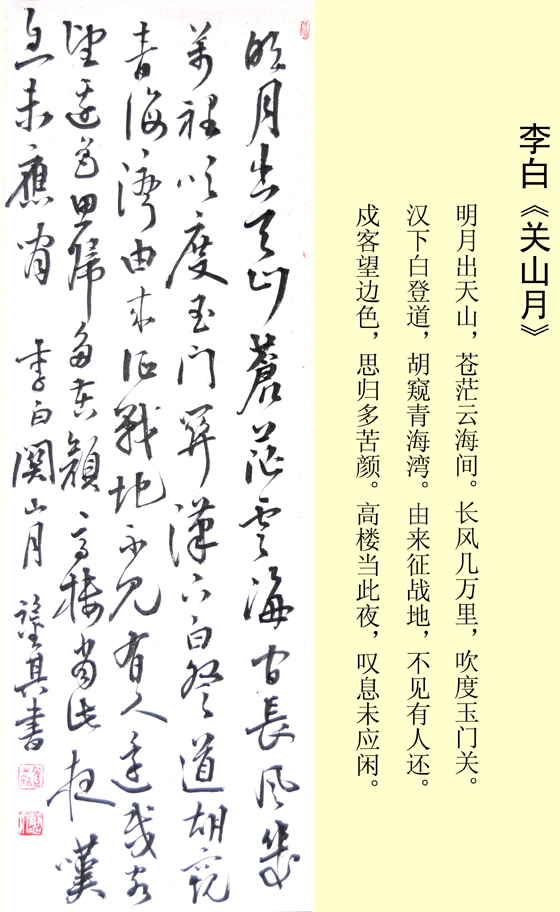 李白《关山月》
明月出天山，苍茫云海间。长风几万里，吹度玉门关。
汉下白登道，胡窥青海湾。由来征战地，不见有人还。
戍客望边色，思归多苦颜。高楼当此夜，叹息未应闲。
明月出天山蒼茫雲海間長風幾
萬裡吹度玉门關漢下白登道胡窺
青海灣由来征戰地不見有人還戍客
望邊色思歸多苦顏高樓當此夜嘆
息未應閒 李白關山月 其書